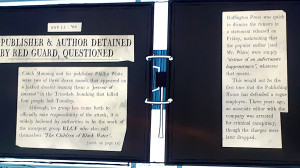 PUBLISHER & AUTHOR DETAINED
BY RED GUARD, QUESTIONED
Catch Manning and his publisher Philip Waite
were two of three dozen names that appeared on
a leaked dossier naming them a "person of
interest" in the Tricolade bombing that killed
four people last Tuesday.
Although no group has come forth to
officially take responsibility of the attack, it is
widely believed by authorities to be the work of
the insurgent group BLCF who also call
themselves "The Children of Black Water."
Huffington Press was quick
to dismiss the rumors in a
statement released on
Friday, maintaining that
the popular author [and
Mr. Waite] were simply
"victims of an unfortunate
happenstance", whatever
that means.
This would not be the
first time that the Publishing
House has defended a rogue
employee. Three years ago,
an associate editor with the
company was arrested
for criminal conspiracy,
though the charges were
later dropped.